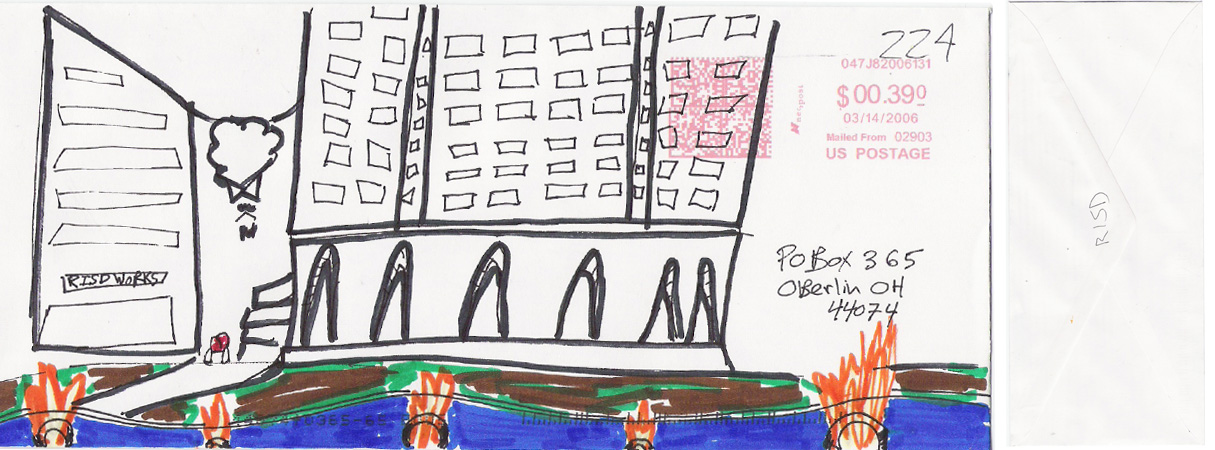 RISD WORKS
224
047J82006131
$00.390
03/14/2006
Mailed From 02903
US POSTAGE
neopost
PO Box 365
Oberlin OH
44074
RISD